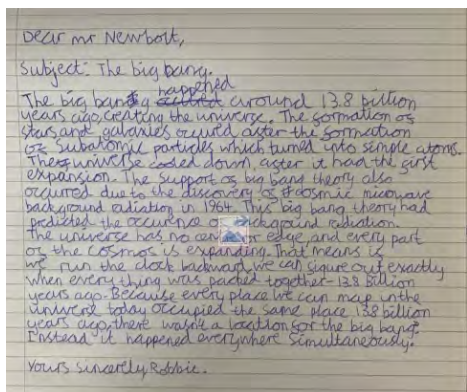 Dear mr Newbolt,
Subject: The big bang.
happened
The big bang around 13.8 billion
years ago, creating the universe. The formation of
stars and galaxies occured after the formation
of subatomic particles which turned into simple atoms.
The universe cooled down, after it had the first
expansion. The support of big bang theory also
occurred due to the discovery of cosmic microwave
background radiation in 1964. This big bang theory had
predicted the occurence background radiation.
The universe has no or edge, and every part
of the cosmos is expanding. That means if
we run the clock backward, we can figure out exactly
when every thing was packed together-13.8 billion
years ago. Because every place we can map in the
universe today occupied the same place 13.8 billion
years ago, there wasn't a location for the big bang.
Instead it happened everywhere simultaneously.
Yours sincerely, Robbie.